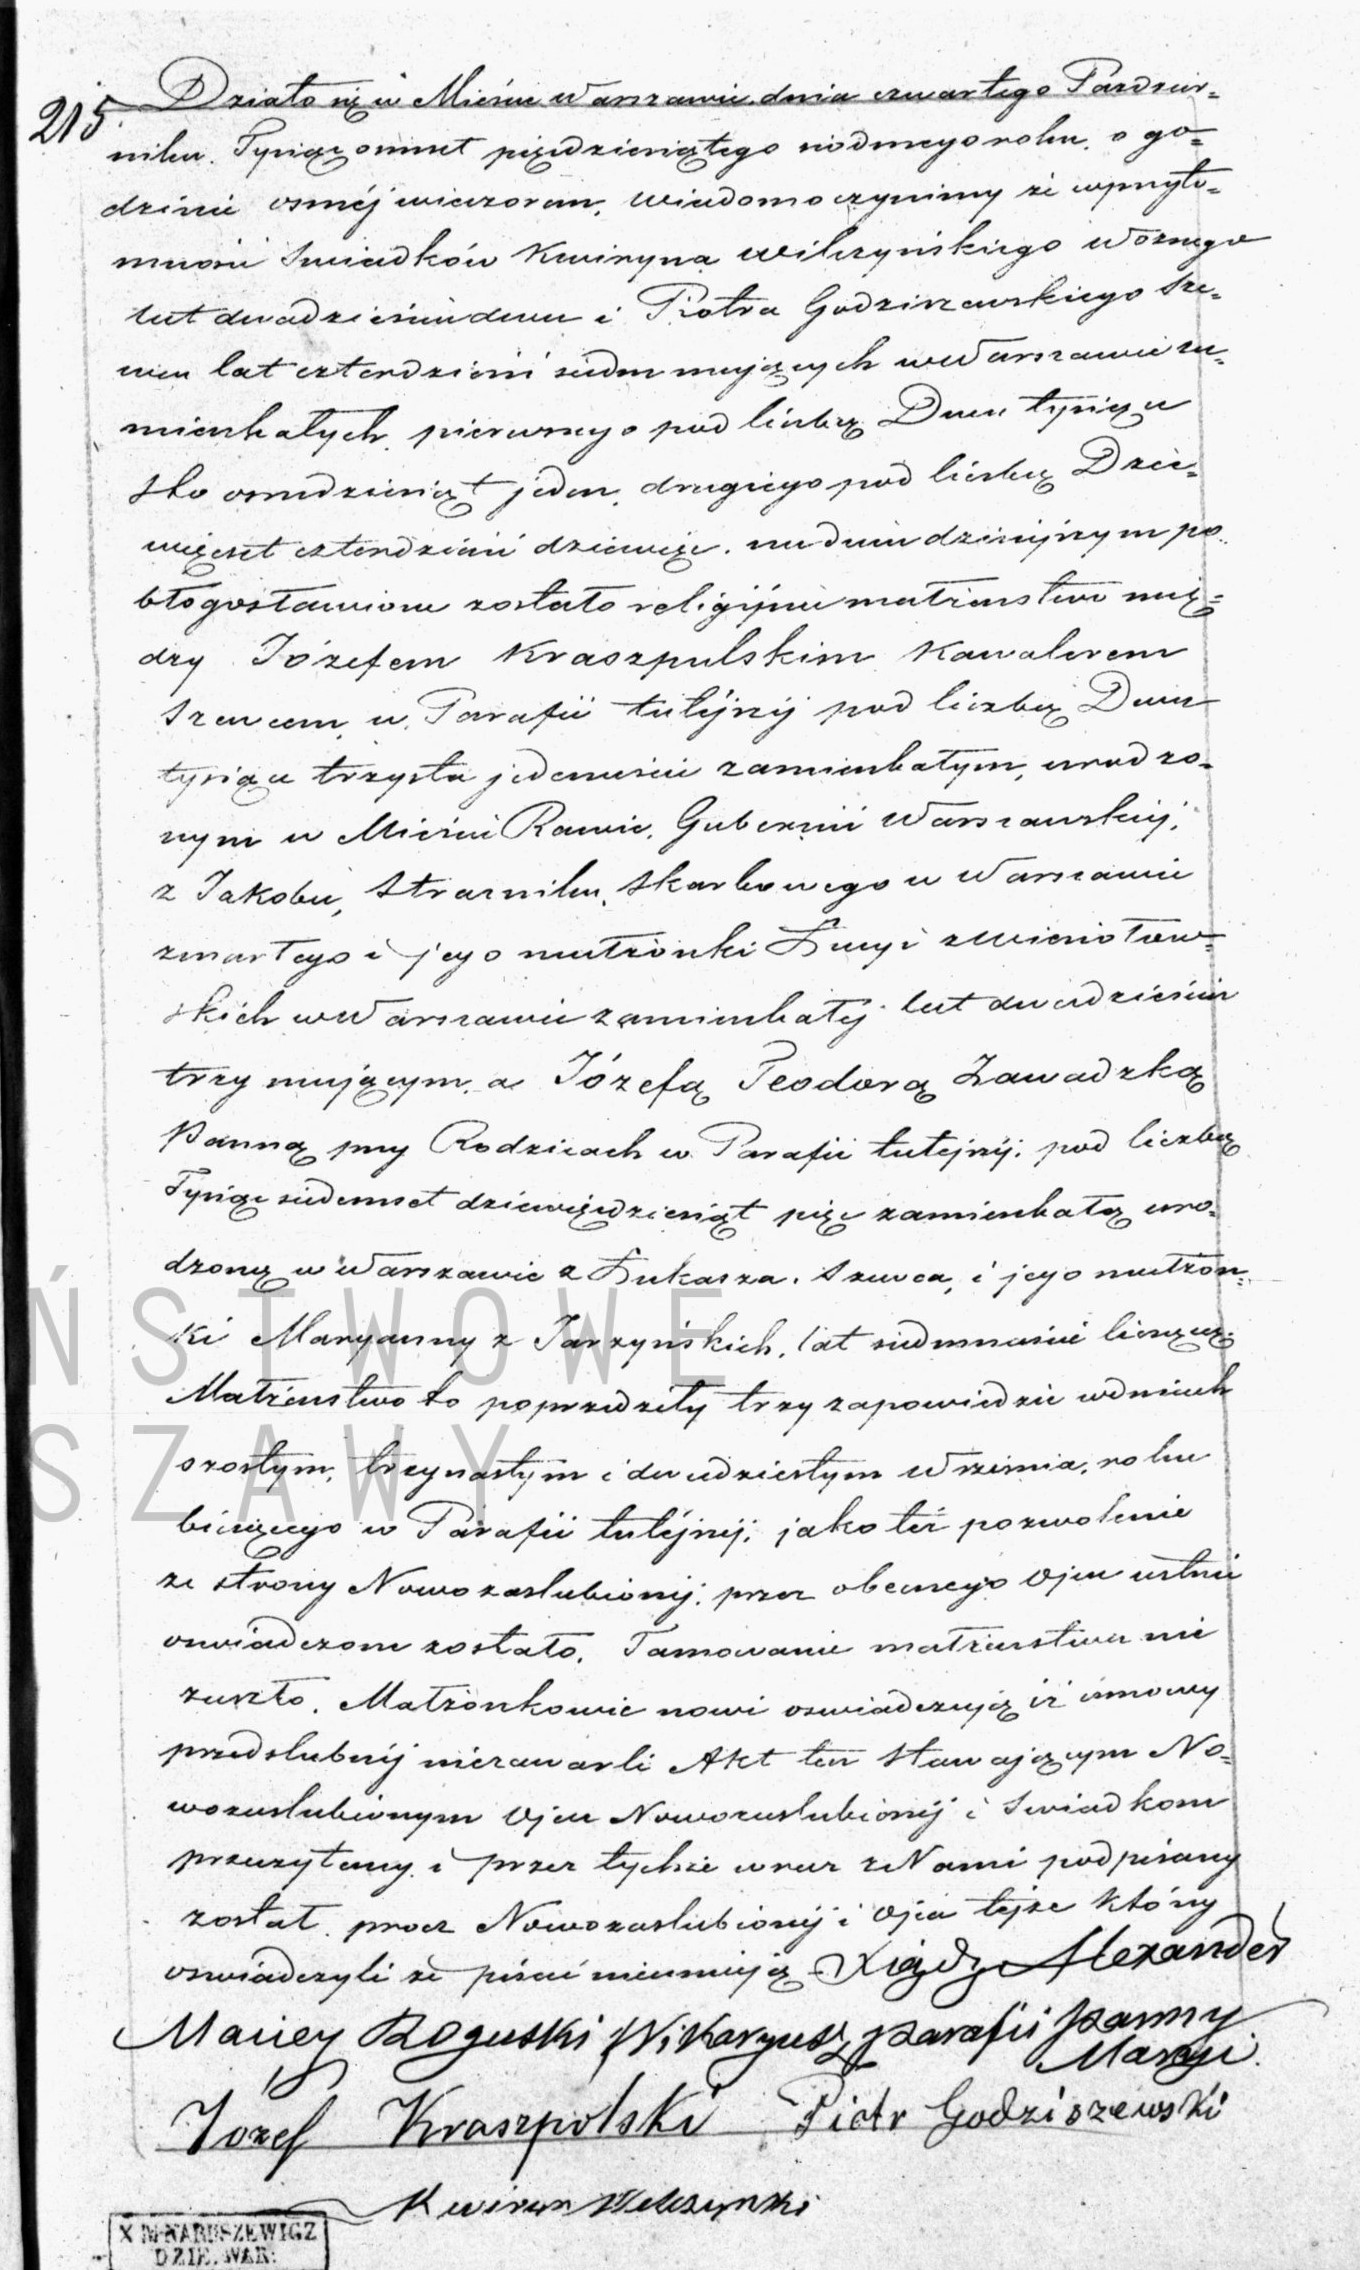 215.
Działo się w Mieście Warszawie, dnia czwartego Paździer=
nika. Tysiąc ośmset pięćdziesiątego siódmego roku, o go=
dzinie ósméj wieczorem, wiadomo czynimy że w przyto=
mności Świadków Kwiryna Wilczyńskiego Woznego
lat dwadzieścia dwa i Piotra Godziszewskiego Sze=
wca lat czterdzieści siedm mających w Warszawie za=
mieszkałych, pierwszego pod liczbą Dwa tysiące
sto ośmdziesiąt jeden, drugiego pod liczbą Dzie=
więcset czterdzieści dziewięć, na dniu dzisiejszym po=
błogosławione zostało religijne małżeństwo mię=
dzy Józefem Kraszpulskim Kawalerem
Szewcem, w Parafii tutéjszéj pod liczbą Dwa
tysiące trzysta jedenaście zamieszkałym, urodzo=
nym w Mieście Rawie, Gubernii Warszawskiéj,
z Jakóba, Strażnika Skarbowego w Warszawie
zmarłego i jego małżonki Łucyi z Wieniaw=
skich w Warszawie zamieszkałéj lat dwadzieścia
trzy mającym, a Józefą Teodorą Zawadzką
Panną przy Rodzicach w Parafii tutejszéj, pod liczbą
Tysiąc siedemset dziewięćdziesiąt pięć zamieszkałą uro=
dzoną w Warszawie z Łukasza, Szewca, i jego małżon=
ki Maryanny z Jarzyńskich, lat siedmnaście liczącą.
Małżeństwo to poprzedziły trzy zapowiedzie w dniach
szóstym, trzynastym i dwudziestym Września, roku
bieżącego w Parafii tutéjszéj, jako też pozwolenie
ze strony Nowozaślubionéj, przez obecnego Ojca ustnie
oświadczone zostało. Tamowanie małżeństwa nie
zaszło. Małżonkowie nowi oświadczają iż umowy
przedślubnéj niezawarli Akt ten Stawającym No=
wozaślubionym Ojcu Nowozaślubionéj i Świadkom
przeczytany, i przez tychże wraz z Nami podpisany
został, prócz Nowozaślubionéj i Ojca tejże którzy
oświadczyli że pisać nieumieją Xiądz Alexander
Maciey Roguski Wikaryusz parafii Panny
Maryi.
Jozef Kraszpolski Piotr Godziszewski
Kwiryn Wilczynski
X M NARUSZEWICZ
DZIE. WAR:
ŃSTWOWE
SZAWY